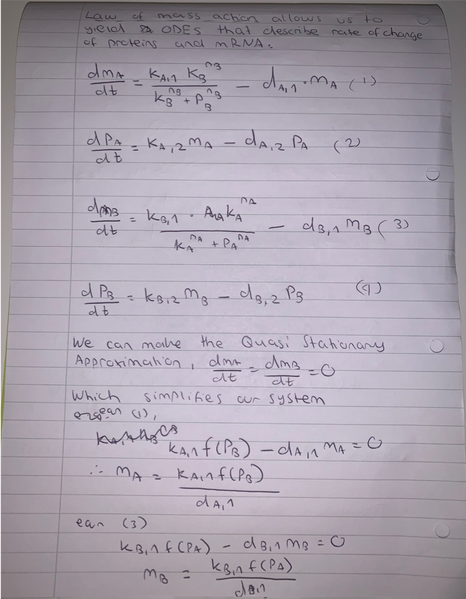 Law of mass action allows us to
yield ODEs that describe rate of change
of proteins and mRNA.
dmA/dt = kA,1 kB^nB / (kB^nB + PB^nB) - dA,1 · mA (1)
dPA/dt = kA,2 mA - dA,2 PA (2)
dmB/dt = kB,1 · kA^nA / (kA^nA + PA^nA) - dB,1 mB (3)
dPB/dt = kB,2 mB - dB,2 PB (4)
We can make the Quasi Stationary
Approximation, dmA/dt = dmB/dt = 0
Which simplifies our system
eqn (1),
kA,1 f(PB) - dA,1 mA = 0
∴ mA = kA,1 f(PB) / dA,1
eqn (3)
kB,1 f(PA) - dB,1 mB = 0
mB = kB,1 f(PA) / dB,1